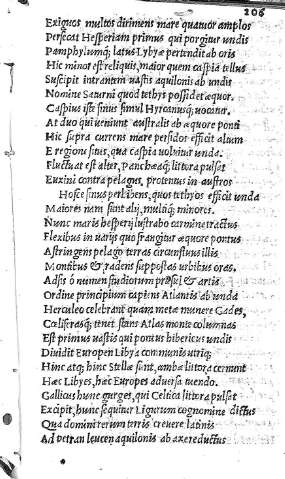 206
Exiguos multos dirimens mare quatuor amplos
Perfecat Hesperiam primus qui porgitur undis
Pamphylumq; latus Lybyæ pertendit ab oris
Hic minor est reliquis, maior quem caspia tellus
Suscipit intrantem uastis aquilonis ab undis
Nomine Saturni quod tethys possidet æquor.
Caspius iste sinus simul Hyrcanusq; uocatur.
At duo qui ueniunt australis ab æquore ponti
Hic supra currens mare persidos efficit altum
E regione situs, qua caspia uoluitur unda.
Fluctuat est alter, Panchæaq; littora pulsat
Euxini contra pelagus, protentus in austros
Hosce sinus perhibens, quos tethyos efficit unda
Maiores nam sunt alij, multiq; minores.
Nunc maris hesperij lustrabo carmine tractus
Flexibus in uarijs quo frangitur æquore pontus
Astringens pelago terras circunfluus illis
Montibus & radens suppositas urbibus oras.
Adsis ô numen studiorum præsul & artis
Ordine principium capiens Atlantis ab unda
Herculeo celebrant quam metæ munere Gades,
Cæliferasq; tenet stans Atlas monte columnas
Est primus uastis qui pontus hibericus undis
Diuidit Europen Libya communis utriq;
Hinc atq; hinc Stellæ sunt, ambæ littora cernunt
Hæc Libyes, hæc Europes aduersa tuendo.
Gallicus hunc gurges, qui Celtica littora pulsat
Excipit, hunc sequitur Ligurum cognomine dictus
Qua domini rerum terris creuere latinis
Ad petran leucen aquilonis ab axe reductus